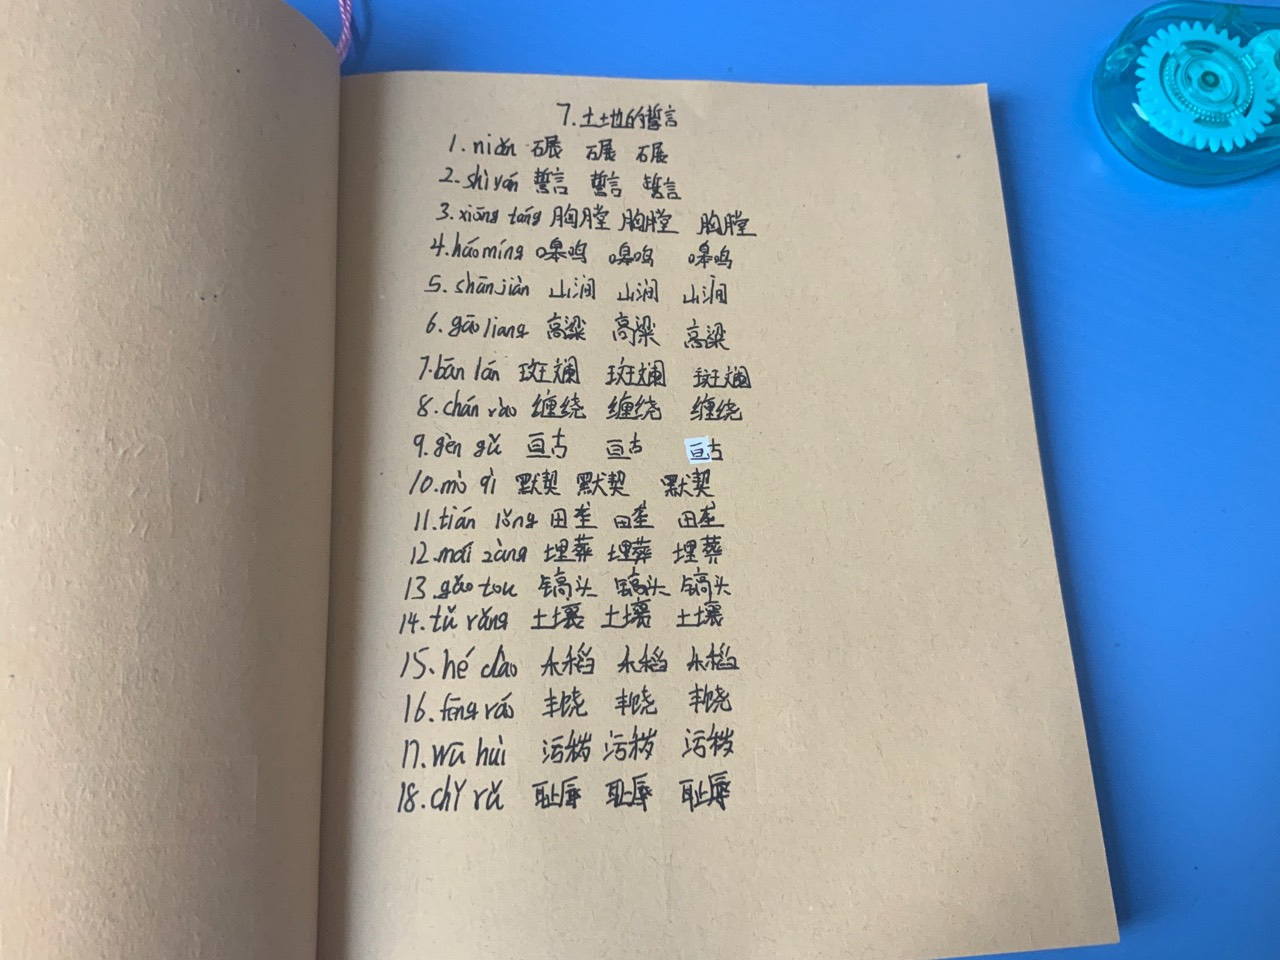 7.土土地的誓言
1.niǎn 碾 碾 碾
2.shì yán 誓言 誓言 誓言
3.xiōng táng 胸膛 胸膛 胸膛
4.háo míng 嗥鸣 嗥鸣 嗥鸣
5.shān jiàn 山涧 山涧 山涧
6.gāo liang 高粱 高粱 高粱
7.bān lán 斑斓 斑斓 斑斓
8.chán rào 缠绕 缠绕 缠绕
9.gèn gǔ 亘古 亘古 亘古
10.mò qì 默契 默契 默契
11.tián lǒng 田垄 田垄 田垄
12.mái zàng 埋葬 埋葬 埋葬
13.gǎo tou 镐头 镐头 镐头
14.tǔ rǎng 土壤 土壤 土壤
15.hé dào 禾稻 禾稻 禾稻
16.fēng ráo 丰饶 丰饶 丰饶
17.wū huì 污秽 污秽 污秽
18.chǐ rǔ 耻辱 耻辱 耻辱